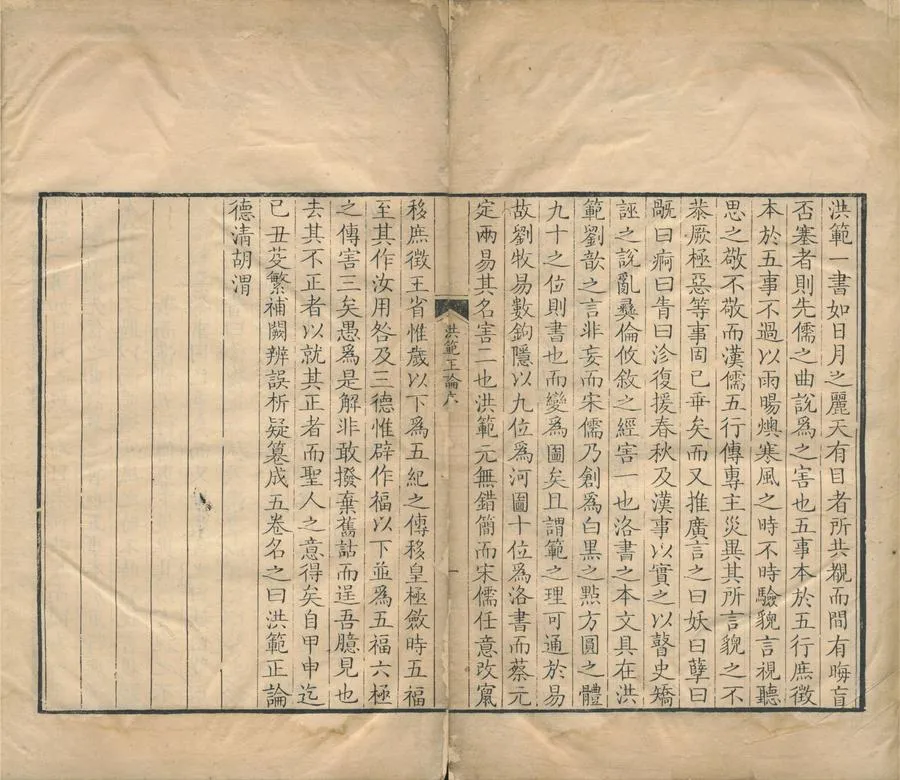 洪範一書如日月之麗天有目者所共覩而間有晦盲
否塞者則先儒之曲說爲之害也五事本於五行庶徵
本於五事不過以雨暘燠寒風之時不時驗貌言視聽
思之敬不敬而漢儒五行傳專主災異其所言貌之不
恭厥極惡等事固已乖矣而又推廣言之曰妖曰孽曰
旤曰痾曰眚曰沴復援春秋及漢事以實之以瞽史矯
誣之說亂彝倫攸敘之經害一也洛書之本文具在洪
範劉歆之言非妄而宋儒乃創爲白黑之點方圓之體
九十之位則書也而變爲圖矣且謂範之理可通於易
故劉牧易數鉤隱以九位爲河圖十位爲洛書而蔡元
定兩易其名害二也洪範元無錯簡而宋儒任意改竄
洪範正論六
移庶徵王省惟歲以下爲五紀之傳移皇極斂時五福
至其作汝用咎及三德惟辟作福以下並爲五福六極
之傳害三矣愚爲是解非敢撥棄舊詁而逞吾臆見也
去其不正者以就其正者而聖人之意得矣自甲申迄
己丑芟繁補闕辨誤析疑篹成五卷名之曰洪範正論
德清胡渭